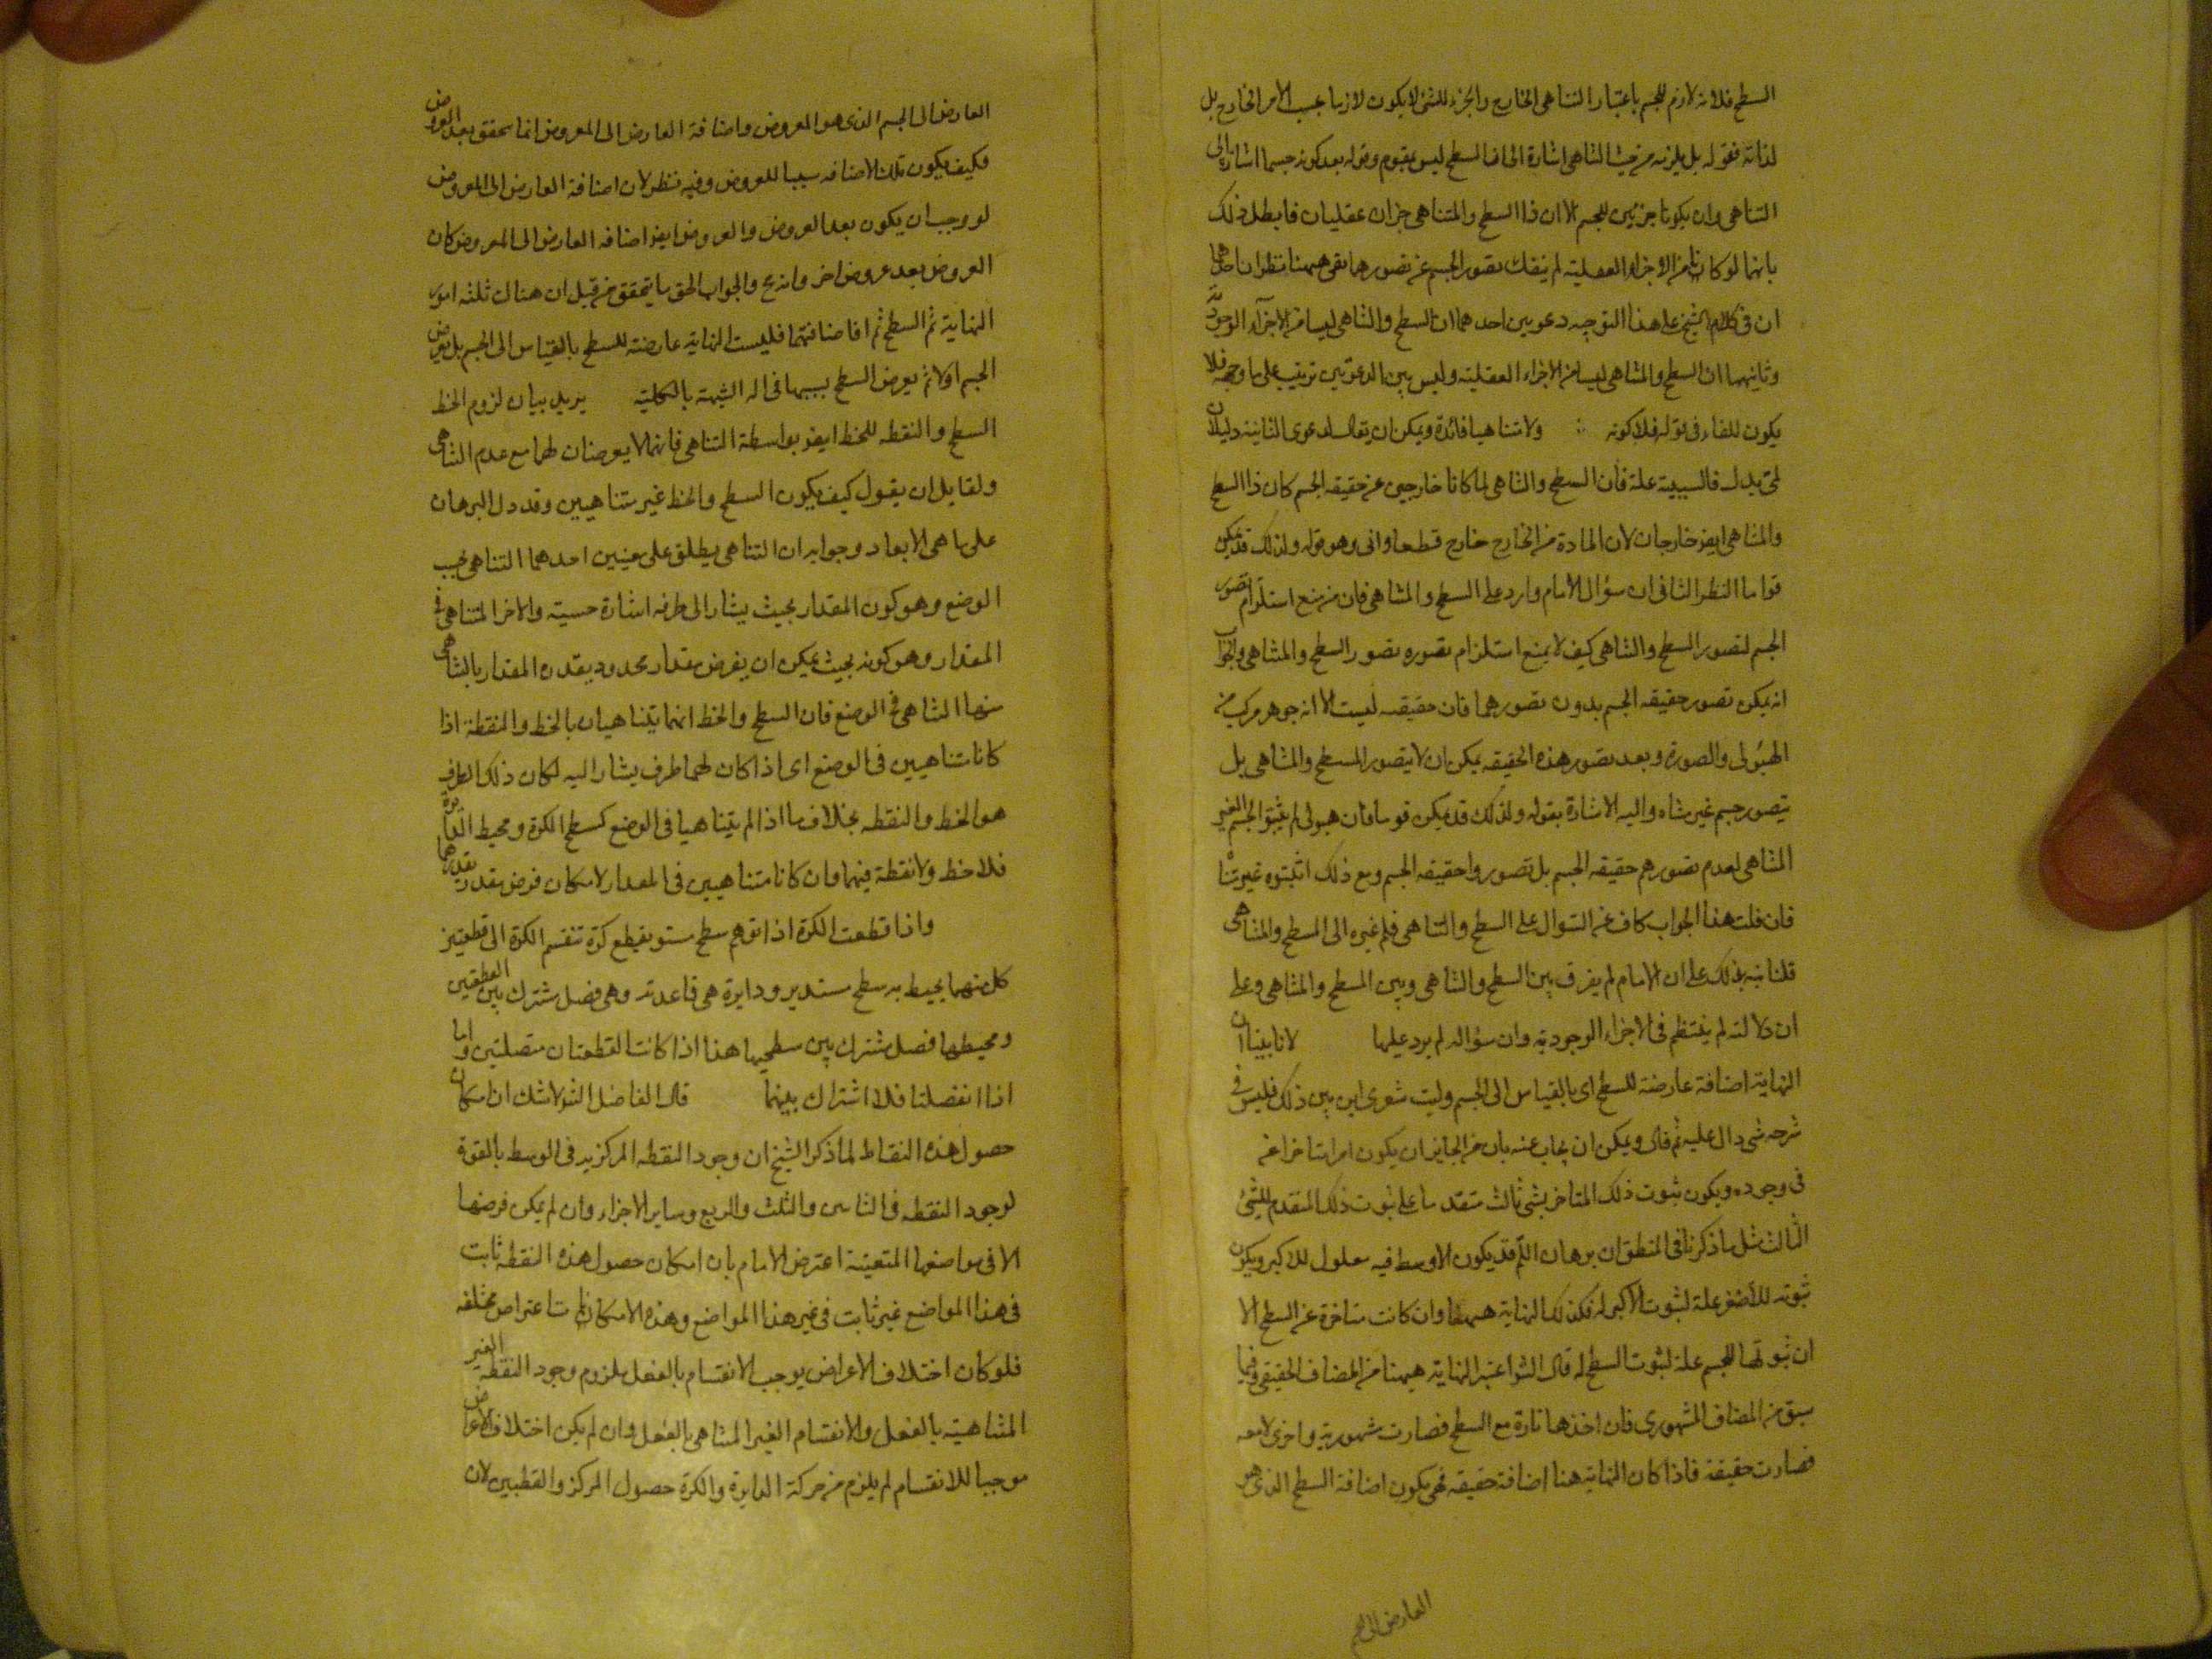 السطح فلانه لازم للجسم باعتبار التناهى الخارج والجزء للشئ لا يكون لازما بحسب الامر الخارج بل
لذاته فقوله بل يلزمه من حيث التناهى اشارة الى ان السطح ليس بمقوم وقوله بعد كونه جسما اشارة الى
التناهى وان يكونا جزئين للجسم الا ان ذا السطح والمتناهى جزان عقليان فابطل ذلك
بانهما لو كانا من الاجزاء العقلية لم ينفك تصور الجسم عن تصورهما بقى ههنا نظران احدهما
ان فى كلام الشيخ على هذا التوجيه دعويين احدهما ان السطح والتناهى ليسا من الاجزاء الوجودية
وثانيهما ان السطح والمتناهى ليسا من الاجزاء العقلية وليس بين الدعوتين ترتيب على ما وجهه فلا
يكون للفاء فى قوله فلا كونه ولا متناهيا فائدة ويمكن ان يقال لدعوى الثانية دليلان
لمى يدل فالسببية علة فان السطح والتناهى لما كانا خارجين عن حقيقه الجسم كان ذا السطح
والمتناهى ايضا خارجان لان المادة من الخارج خارج قطعا وانى وهو قوله ولذلك قد يمكن
قوما النظر الثانى ان سؤال الامام وارد على السطح والمتناهى فان من منع استلزام تصور
الجسم لتصور السطح والتناهى كيف لا يمنع استلزام تصوره تصور السطح والمتناهى والجواب
انه يمكن تصور حقيقه الجسم بدون تصورهما فان حقيقته ليست الا انه جوهر مركب من
الهيولى والصورة وبعد تصور هذه الحقيقه يمكن ان لا يتصور المسطح والمتناهى بل
يتصور جسم غير متناه واليه الاشارة بقوله ولذلك قد يمكن قوما فان هولى لم يثبتوا الجسم الغير
المتناهى لعدم تصورهم حقيقه الجسم بل تصوروا حقيقه الجسم ومع ذلك اثبتوه غير متناه
فان قلت هذا الجواب كاف عن السوال على السطح والتناهى فلم غيره الى المسطح والمتناهى
قلنا نبه بذلك على ان الامام لم يفرق بين السطح والتناهى وبين المسطح والمتناهى وعلى
ان دلالته لم ينتظم فى الاجزاء الوجودية وان سؤاله لم يرد عليها لانا بينا ان
النهاية اضافة عارضة للسطح اى بالقياس الى الجسم وليت شعرى اين بين ذلك فليس فى
شرحه شى دال عليه ثم قال ويمكن ان يجاب عنه بان من الجايز ان يكون امر متاخرا عن
فى وجوده ويكون ثبوت ذلك المتاخر بشى ثالث متقدما على ثبوت ذلك المتقدم للشئ
الثالث مثل ما ذكرنا فى المنطق ان برهان اللم قد يكون الاوسط فيه معلول للاكبر ويكون
ثبوته للاصغر علة لثبوت الاكبر له فكذلك النهاية ههنا وان كانت متاخرة عن السطح الا
ان ثبوتها للجسم علة لثبوت السطح له قال الش اعتبر النهاية ههنا من المضاف الحقيقى وفيما
سبق من المضاف المشهورى فان اخذها تارة مع السطح فصارت مشهورية واخرى لا معه
فصارت حقيقة فاذا كان النهاية هنا اضافة حقيقه فهى يكون اضافة السطح الذى هو
العارض الى الجسم
العارض الى الجسم الذى هو المعروض واضافة العارض الى المعروض انما تتحقق بعد العروض
فكيف يكون تلك الاضافه سببا للعروض وفيه نظر لان اضافة العارض الى المعروض
لو وجب ان يكون بعد العروض والعروض ايضا اضافه العارض الى المعروض كان
العروض بعد عروض اخر وانه مح والجواب الحق ما يتحقق من قبل ان هناك ثلثه امور
النهاية ثم السطح ثم اضافتهما فليست النهاية عارضة للسطح بالقياس الى الجسم بل تعرض
الجسم اولا ثم يعرض السطح بسببها فزاله الشبهة بالكلية يريد بيان لزوم الخط
السطح والنقطه للخط ايضا بواسطة التناهى فانهما لا يعرضان لهما مع عدم التناهى
ولقايل ان يقول كيف يكون السطح والخط غير متناهيين وقد دل البرهان
على تناهى الابعاد وجوابه ان التناهى يطلق على معنيين احدهما التناهى بحسب
الوضع وهو كون المقدار بحيث يشار الى طرفه اشارة حسية والاخر المتناهى فى
المقدار وهو كونه بحيث يمكن ان يفرض مقدار محدود يقدره المقدار بالتناهى
منهما التناهى فى الوضع فان السطح والخط انما يتناهيان بالخط والنقطة اذا
كانا متناهيين فى الوضع اى اذا كان لهما طرف يشار اليه لكان ذلك الطرف
هو الخط والنقطه بخلاف ما اذا لم يتناهيا فى الوضع كسطح الكرة ومحيط الدايرة
فلا خط ولا نقطة فيهما وان كانا متناهيين فى المقدار لامكان فرض مقدار يقدرهما
واذا قطعت الكرة اذا توهم سطح مستو يقطع كرة تنقسم الكرة الى قطعتين
كل منهما يحيط به سطح مستدير ودايرة هى قاعدته وهى فصل مشترك بين القطعتين
ومحيطها فصل مشترك بين سطحيهما هذا اذا كانت القطعتان متصلتين واما
اذا انفصلتا فلا اشتراك بينهما قال الفاضل الش لا شك ان امكان
حصول هذه النقاط لما ذكر الشيخ ان وجود النقطه المركزيه فى الوسط بالقوة
لوجود النقطه فى الثلثين والثلث والربع وساير الاجزاء وان لم يمكن فرضها
الا فى مواضعها المتعينة اعترض الامام بان امكان حصول هذه النقطه ثابت
فى هذا المواضع غير ثابت فى غير هذا المواضع وهذه الامكانات اعتراض مختلفه
فلو كان اختلاف الاعراض يوجب الانقسام بالفعل يلزوم وجود النقطه الغير
المتناهية بالفعل والانقسام الغير المتناهى بالفعل وان لم يكن اختلاف الاعراض
موجبا للانقسام لم يلزم من حركة الدايرة والكرة حصول المركز والقطبين لان